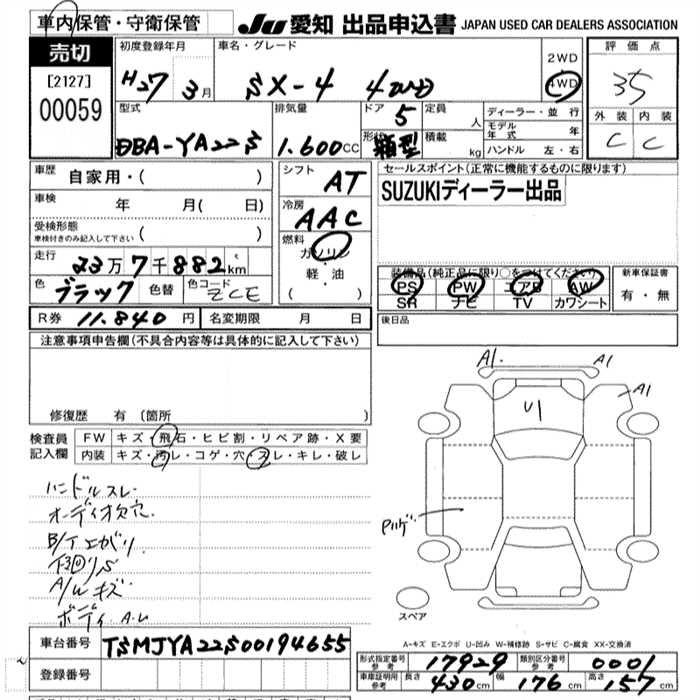 車内保管・守衛保管
JU 愛知 出品申込書 JAPAN USED CAR DEALERS ASSOCIATION
売切
[2127]
00059
初度登録年月
H27 3月
車名・グレード
SX-4 4WD
2WD
4WD
評価点
35
外装 内装
C C
型式
DBA-YA22S
排気量
1.600cc
ドア 5
形状 箱型
定員 人
積載 kg
ディーラー・並行
モデル年式 年
ハンドル 左・右
車歴 自家用・( )
車検 年 月( 日)
受検形態
車検付きのみ記入して下さい ( )
走行 23万7千882km
色 ブラック 色替 色コード ZCE
シフト AT
冷房 AAC
燃料 ガソリン
軽・油
( )
セールスポイント(正常に機能するものに限ります)
SUZUKIディーラー出品
装備品(純正品に限り○をつけてください)
PS PW エアB AW
SR ナビ TV カワシート
新車保証書
有・無
R券 11.840円 名変期限 月 日
後日品
注意事項申告欄(不具合内容等は具体的に記入して下さい)
修復歴 有 (箇所 )
検査員記入欄
FW キズ・飛石・ヒビ割・リペア跡・X要
内装 キズ・汚レ・コゲ・穴・スレ・キレ・破レ
ハンドルスレ
オーディオ欠穴
下回りS
A/Wキズ
A1. A1
A1
U1
スペア
A-キズ E-エクボ U-凹み W-補修跡 S-サビ C-腐食 XX-交換済
車台番号 TSMJYA22S00194655
登録番号
形式指定番号 参考 17929 類別区分番号 参考 0001
車庫証明用 参考 長さ 430cm 幅 176cm 高さ 157cm